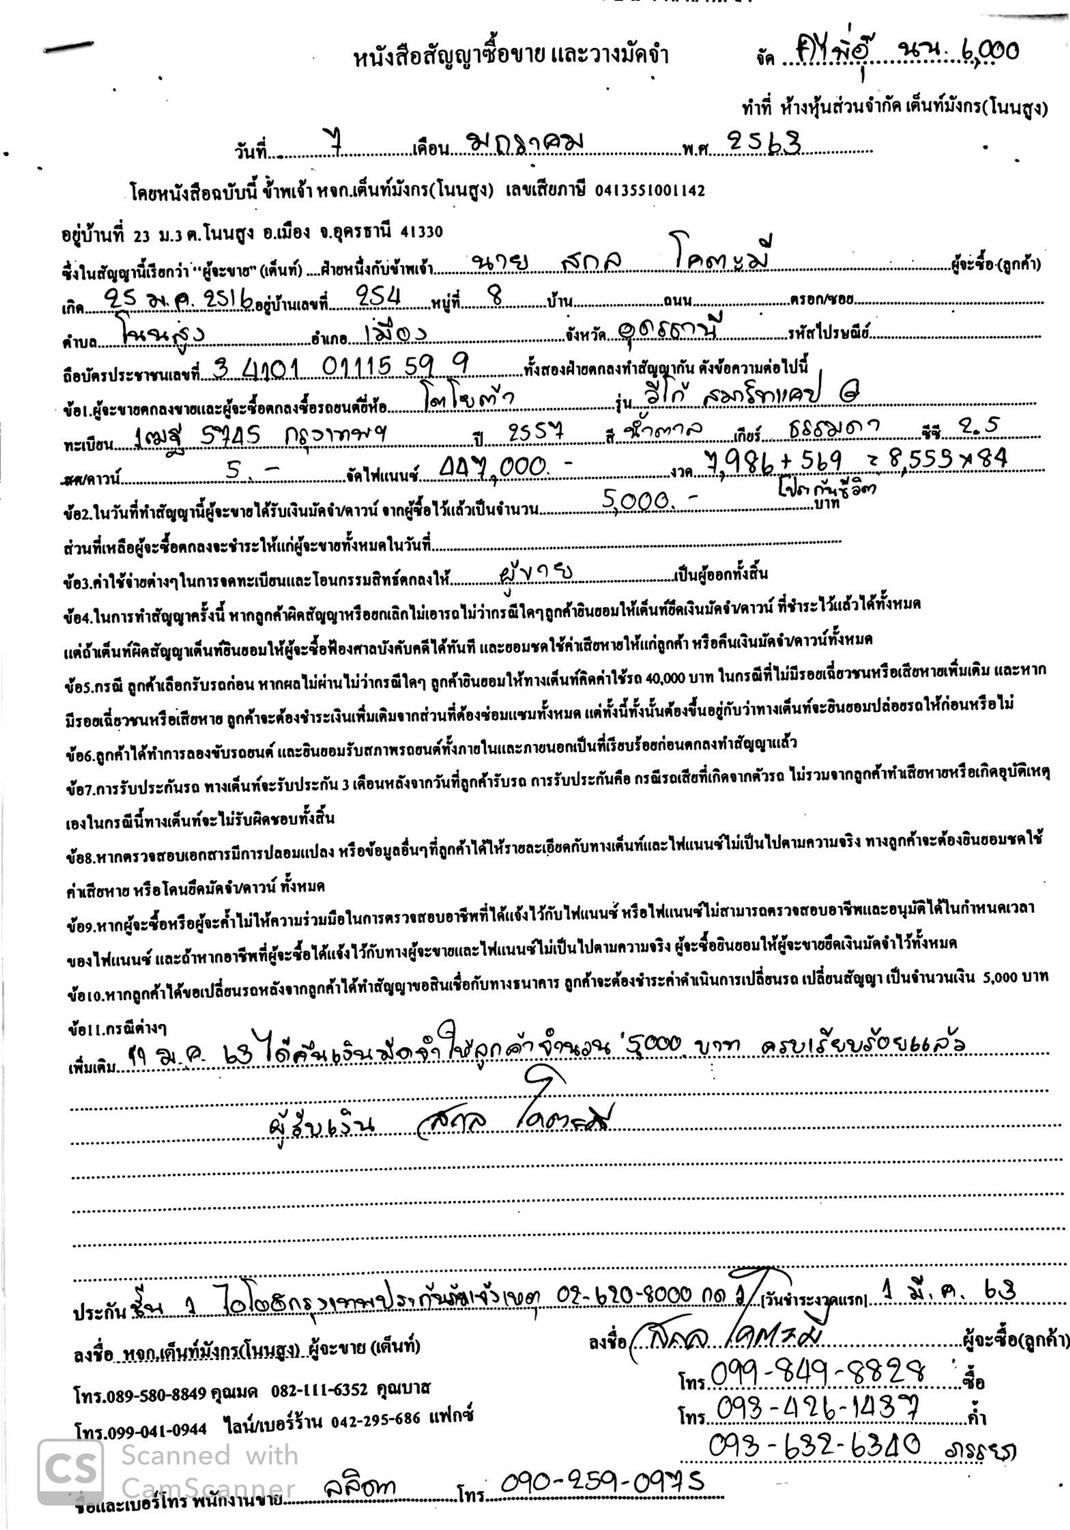 หนังสือสัญญาซื้อขาย และวางมัดจำ
จัด นน. 6,000
ทำที่ ห้างหุ้นส่วนจำกัด เต็นท์มังกร(โนนสูง)
วันที่ 7 เดือน มกราคม พ.ศ 2563
โดยหนังสือฉบับนี้ ข้าพเจ้า หจก.เต็นท์มังกร(โนนสูง) เลขเสียภาษี 0413551001142
อยู่บ้านที่ 23 ม.3 ต.โนนสูง อ.เมือง จ.อุดรธานี 41330
ซึ่งในสัญญานี้เรียกว่า "ผู้จะขาย" (เต็นท์) ....ฝ่ายหนึ่งกับข้าพเจ้า นาย สกล โคตะมี ผู้จะซื้อ (ลูกค้า)
เกิด 25 ม.ค. 2516 อยู่บ้านเลขที่ 254 หมู่ที่ 8 บ้าน ถนน ตรอก/ซอย
ตำบล โนนสูง อำเภอ เมือง จังหวัด อุดรธานี รหัสไปรษณีย์
ถือบัตรประชาชนเลขที่ 3 4101 01115 59 9 ทั้งสองฝ่ายตกลงทำสัญญากัน ดังข้อความต่อไปนี้
ข้อ1.ผู้จะขายตกลงขายและผู้จะซื้อตกลงซื้อรถยนต์ยี่ห้อ โตโยต้า รุ่น วีโก้ สมาร์ทแคป
ทะเบียน 1ฒฐ 5745 กรุงเทพฯ ปี 2557 สี น้ำตาล เกียร์ ธรรมดา ซีซี 2.5
สด/ดาวน์ 5.- จัดไฟแนนซ์ 447,000.- งวด 7,986 + 569 = 8,555 x 84
โปะกันชีวิต
ข้อ2.ในวันที่ทำสัญญานี้ผู้จะขายได้รับเงินมัดจำ/ดาวน์ จากผู้ซื้อไว้แล้วเป็นจำนวน 5,000.- บาท
ส่วนที่เหลือผู้จะซื้อตกลงจะชำระให้แก่ผู้จะขายทั้งหมดในวันที่
ข้อ3.ค่าใช้จ่ายต่างๆในการจดทะเบียนและโอนกรรมสิทธ์ตกลงให้ ผู้ขาย เป็นผู้ออกทั้งสิ้น
ข้อ4.ในการทำสัญญาครั้งนี้ หากลูกค้าผิดสัญญาหรือยกเลิกไม่เอารถไม่ว่ากรณีใดๆลูกค้ายินยอมให้เต็นท์ยึดเงินมัดจำ/ดาวน์ ที่ชำระไว้แล้วได้ทั้งหมด
แต่ถ้าเต็นท์ผิดสัญญาเต็นท์ยินยอมให้ผู้จะซื้อฟ้องศาลบังคับคดีได้ทันที และยอมชดใช้ค่าเสียหายให้แก่ลูกค้า หรือคืนเงินมัดจำ/ดาวน์ทั้งหมด
ข้อ5.กรณี ลูกค้าเลือกรับรถก่อน หากผลไม่ผ่านไม่ว่ากรณีใดๆ ลูกค้ายินยอมให้ทางเต็นท์คิดค่าใช้รถ 40,000 บาท ในกรณีที่ไม่มีรอยเฉี่ยวชนหรือเสียหายเพิ่มเติม และหาก
มีรอยเฉี่ยวชนหรือเสียหาย ลูกค้าจะต้องชำระเงินเพิ่มเติมจากส่วนที่ต้องซ่อมแซมทั้งหมด แต่ทั้งนี้ทั้งนั้นต้องขึ้นอยู่กับว่าทางเต็นท์จะยินยอมปล่อยรถให้ก่อนหรือไม่
ข้อ6.ลูกค้าได้ทำการลองขับรถยนต์ และยินยอมรับสภาพรถยนต์ทั้งภายในและภายนอกเป็นที่เรียบร้อยก่อนตกลงทำสัญญาแล้ว
ข้อ7.การรับประกันรถ ทางเต็นท์จะรับประกัน 3 เดือนหลังจากวันที่ลูกค้ารับรถ การรับประกันคือ กรณีรถเสียที่เกิดจากตัวรถ ไม่รวมจากลูกค้าทำเสียหายหรือเกิดอุบัติเหตุ
เองในกรณีนี้ทางเต็นท์จะไม่รับผิดชอบทั้งสิ้น
ข้อ8.หากตรวจสอบเอกสารมีการปลอมแปลง หรือข้อมูลอื่นๆที่ลูกค้าได้ให้รายละเอียดกับทางเต็นท์และไฟแนนซ์ไม่เป็นไปตามความจริง ทางลูกค้าจะต้องยินยอมชดใช้
ค่าเสียหาย หรือโดนยึดมัดจำ/ดาวน์ ทั้งหมด
ข้อ9.หากผู้จะซื้อหรือผู้จะค้ำไม่ให้ความร่วมมือในการตรวจสอบอาชีพที่ได้แจ้งไว้กับไฟแนนซ์ หรือไฟแนนซ์ไม่สามารถตรวจสอบอาชีพและอนุมัติได้ในกำหนดเวลา
ของไฟแนนซ์ และถ้าหากอาชีพที่ผู้จะซื้อได้แจ้งไว้กับทางผู้จะขายและไฟแนนซ์ไม่เป็นไปตามความจริง ผู้จะซื้อยินยอมให้ผู้จะขายยึดเงินมัดจำไว้ทั้งหมด
ข้อ10.หากลูกค้าได้ขอเปลี่ยนรถหลังจากลูกค้าได้ทำสัญญาขอสินเชื่อกับทางธนาคาร ลูกค้าจะต้องชำระค่าดำเนินการเปลี่ยนรถ เปลี่ยนสัญญา เป็นจำนวนเงิน 5,000 บาท
ข้อ11.กรณีต่างๆ
เพิ่มเติม 11 ม.ค. 63 ได้คืนเงินมัดจำให้ลูกค้าจำนวน 5,000 บาท ครบเรียบร้อยแล้ว
ผู้รับเงิน สกล โคตะมี
ประกัน ชั้น 1 ไอโออิกรุงเทพประกันภัยแจ้งเหตุ 02-620-8000 กด 1 [วันชำระงวดแรก] 1 มี.ค. 63
ลงชื่อ หจก.เต็นท์มังกร(โนนสูง) ผู้จะขาย (เต็นท์) ลงชื่อ สกล โคตะมี ผู้จะซื้อ(ลูกค้า)
โทร.089-580-8849 คุณมด 082-111-6352 คุณบาส โทร 099-849-8828 ซื้อ
โทร.099-041-0944 ไลน์/เบอร์ร้าน 042-295-686 แฟกซ์ โทร 093-426-1437 ค้ำ
093-632-6340 ภรรยา
CS Scanned with CamScanner
ชื่อและเบอร์โทร พนักงานขาย ลลิตา โทร 090-259-0975